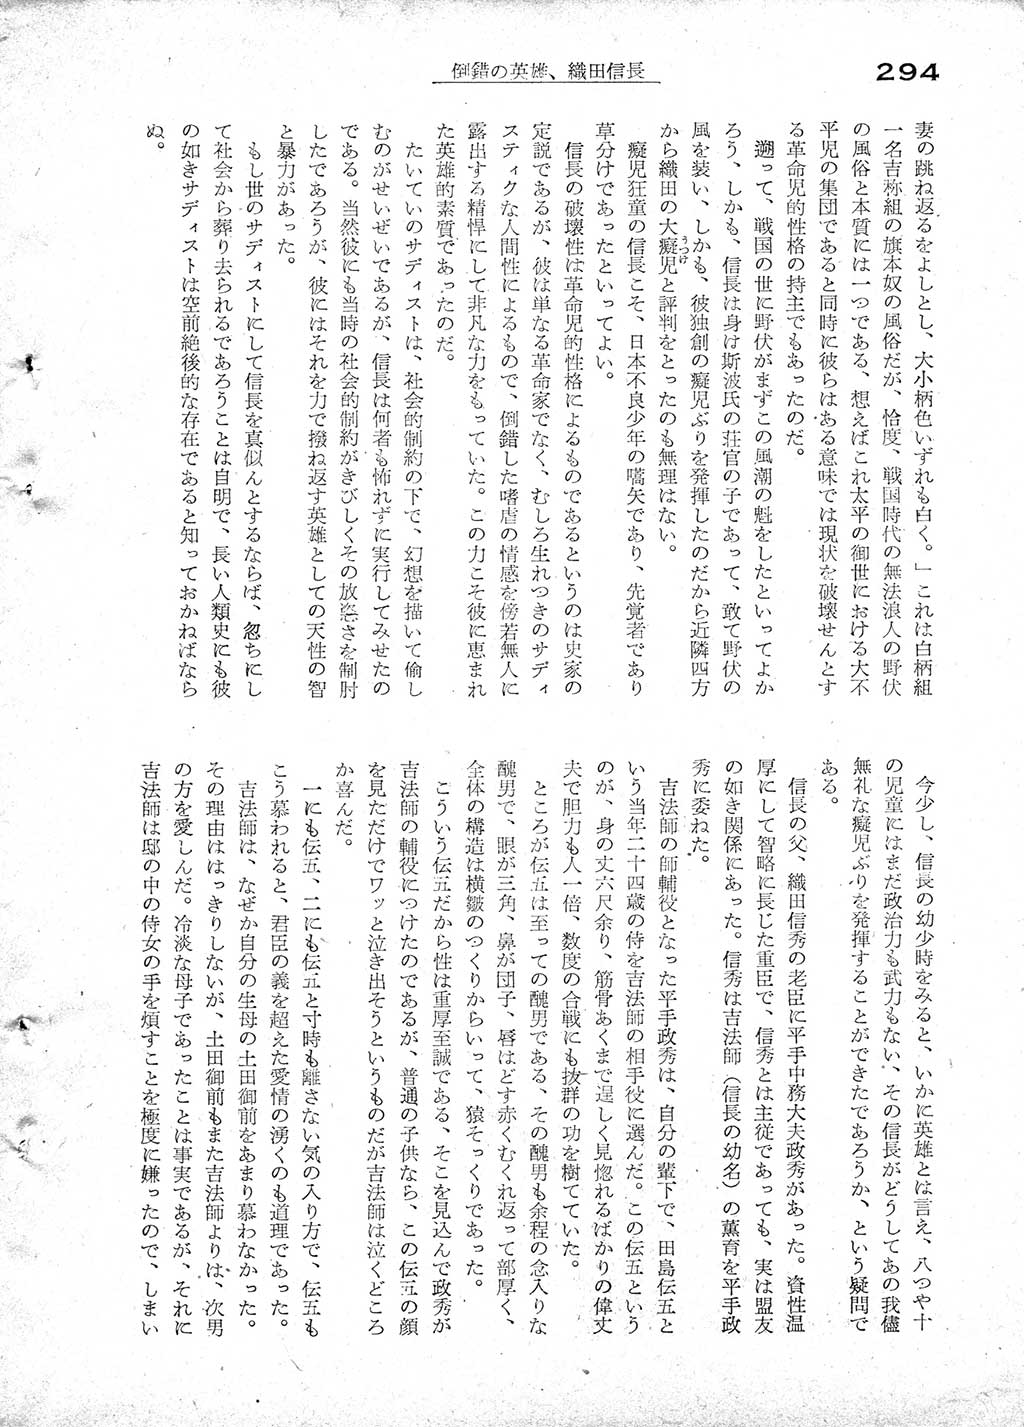 倒錯の英雄、織田信長
294
妻の跳ね返るをよしとし、大小柄色いずれも白く。」これは白柄組
一名吉称組の旗本奴の風俗だが、恰度、戦国時代の無法浪人の野伏
の風俗と本質には一つである、想えばこれ太平の御世における大不
平児の集団であると同時に彼らはある意味では現状を破壊せんとす
る革命児的性格の持主でもあったのだ。
遡って、戦国の世に野伏がまずこの風潮の魁をしたといってよか
ろう、しかも、信長は身は斯波氏の荘官の子であって、敢て野伏の
風を装い、しかも、彼独創の癡児ぶりを発揮したのだから近隣四方
から織田の大癡児うつけと評判をとったのも無理はない。
癡児狂童の信長こそ、日本不良少年の嚆矢であり、先覚者であり
草分けであったといってよい。
信長の破壊性は革命児的性格によるものであるというのは史家の
定説であるが、彼は単なる革命家でなく、むしろ生れつきのサディ
スティクな人間性によるもので、倒錯した嗜虐の情感を傍若無人に
露出する精悍にして非凡な力をもっていた。この力こそ彼に恵まれ
た英雄的素質であったのだ。
たいていのサディストは、社会的制約の下で、幻想を描いて偷し
むのがせいぜいであるが、信長は何者も怖れずに実行してみせたの
である。当然彼にも当時の社会的制約がきびしくその放恣さを制肘
したであろうが、彼にはそれを力で撥ね返す英雄としての天性の智
と暴力があった。
もし世のサディストにして信長を真似んとするならば、忽ちにし
て社会から葬り去られるであろうことは自明で、長い人類史にも彼
の如きサディストは空前絶後的な存在であると知っておかねばなら
ぬ。
今少し、信長の幼少時をみると、いかに英雄とは言え、八つや十
の児童にはまだ政治力も武力もない、その信長がどうしてあの我儘
無礼な癡児ぶりを発揮することができたであろうか、という疑問で
ある。
信長の父、織田信秀の老臣に平手中務大夫政秀があった。資性温
厚にして智略に長じた重臣で、信秀とは主従であっても、実は盟友
の如き関係にあった。信秀は吉法師（信長の幼名）の薫育を平手政
秀に委ねた。
吉法師の師輔役となった平手政秀は、自分の輩下で、田島伝五と
いう当年二十四歳の侍を吉法師の相手役に選んだ。この伝五という
のが、身の丈六尺余り、筋骨あくまで逞しく見惚れるばかりの偉丈
夫で胆力も人一倍、数度の合戦にも抜群の功を樹てていた。
ところが伝五は至っての醜男である、その醜男も余程の念入りな
醜男で、眼が三角、鼻が団子、唇はどす赤くむくれ返って部厚く、
全体の構造は横皺のつくりからいって、猿そっくりであった。
こういう伝五だから性は重厚至誠である、そこを見込んで政秀が
吉法師の輔役につけたのであるが、普通の子供なら、この伝五の顔
を見ただけでワッと泣き出そうというものだが吉法師は泣くどころ
か喜んだ。
一にも伝五、二にも伝五と寸時も離さない気の入り方で、伝五も
こう慕われると、君臣の義を超えた愛情の湧くのも道理であった。
吉法師は、なぜか自分の生母の土田御前をあまり慕わなかった。
その理由ははっきりしないが、土田御前もまた吉法師よりは、次男
の方を愛しんだ。冷淡な母子であったことは事実であるが、それに
吉法師は邸の中の侍女の手を煩すことを極度に嫌ったので、しまい